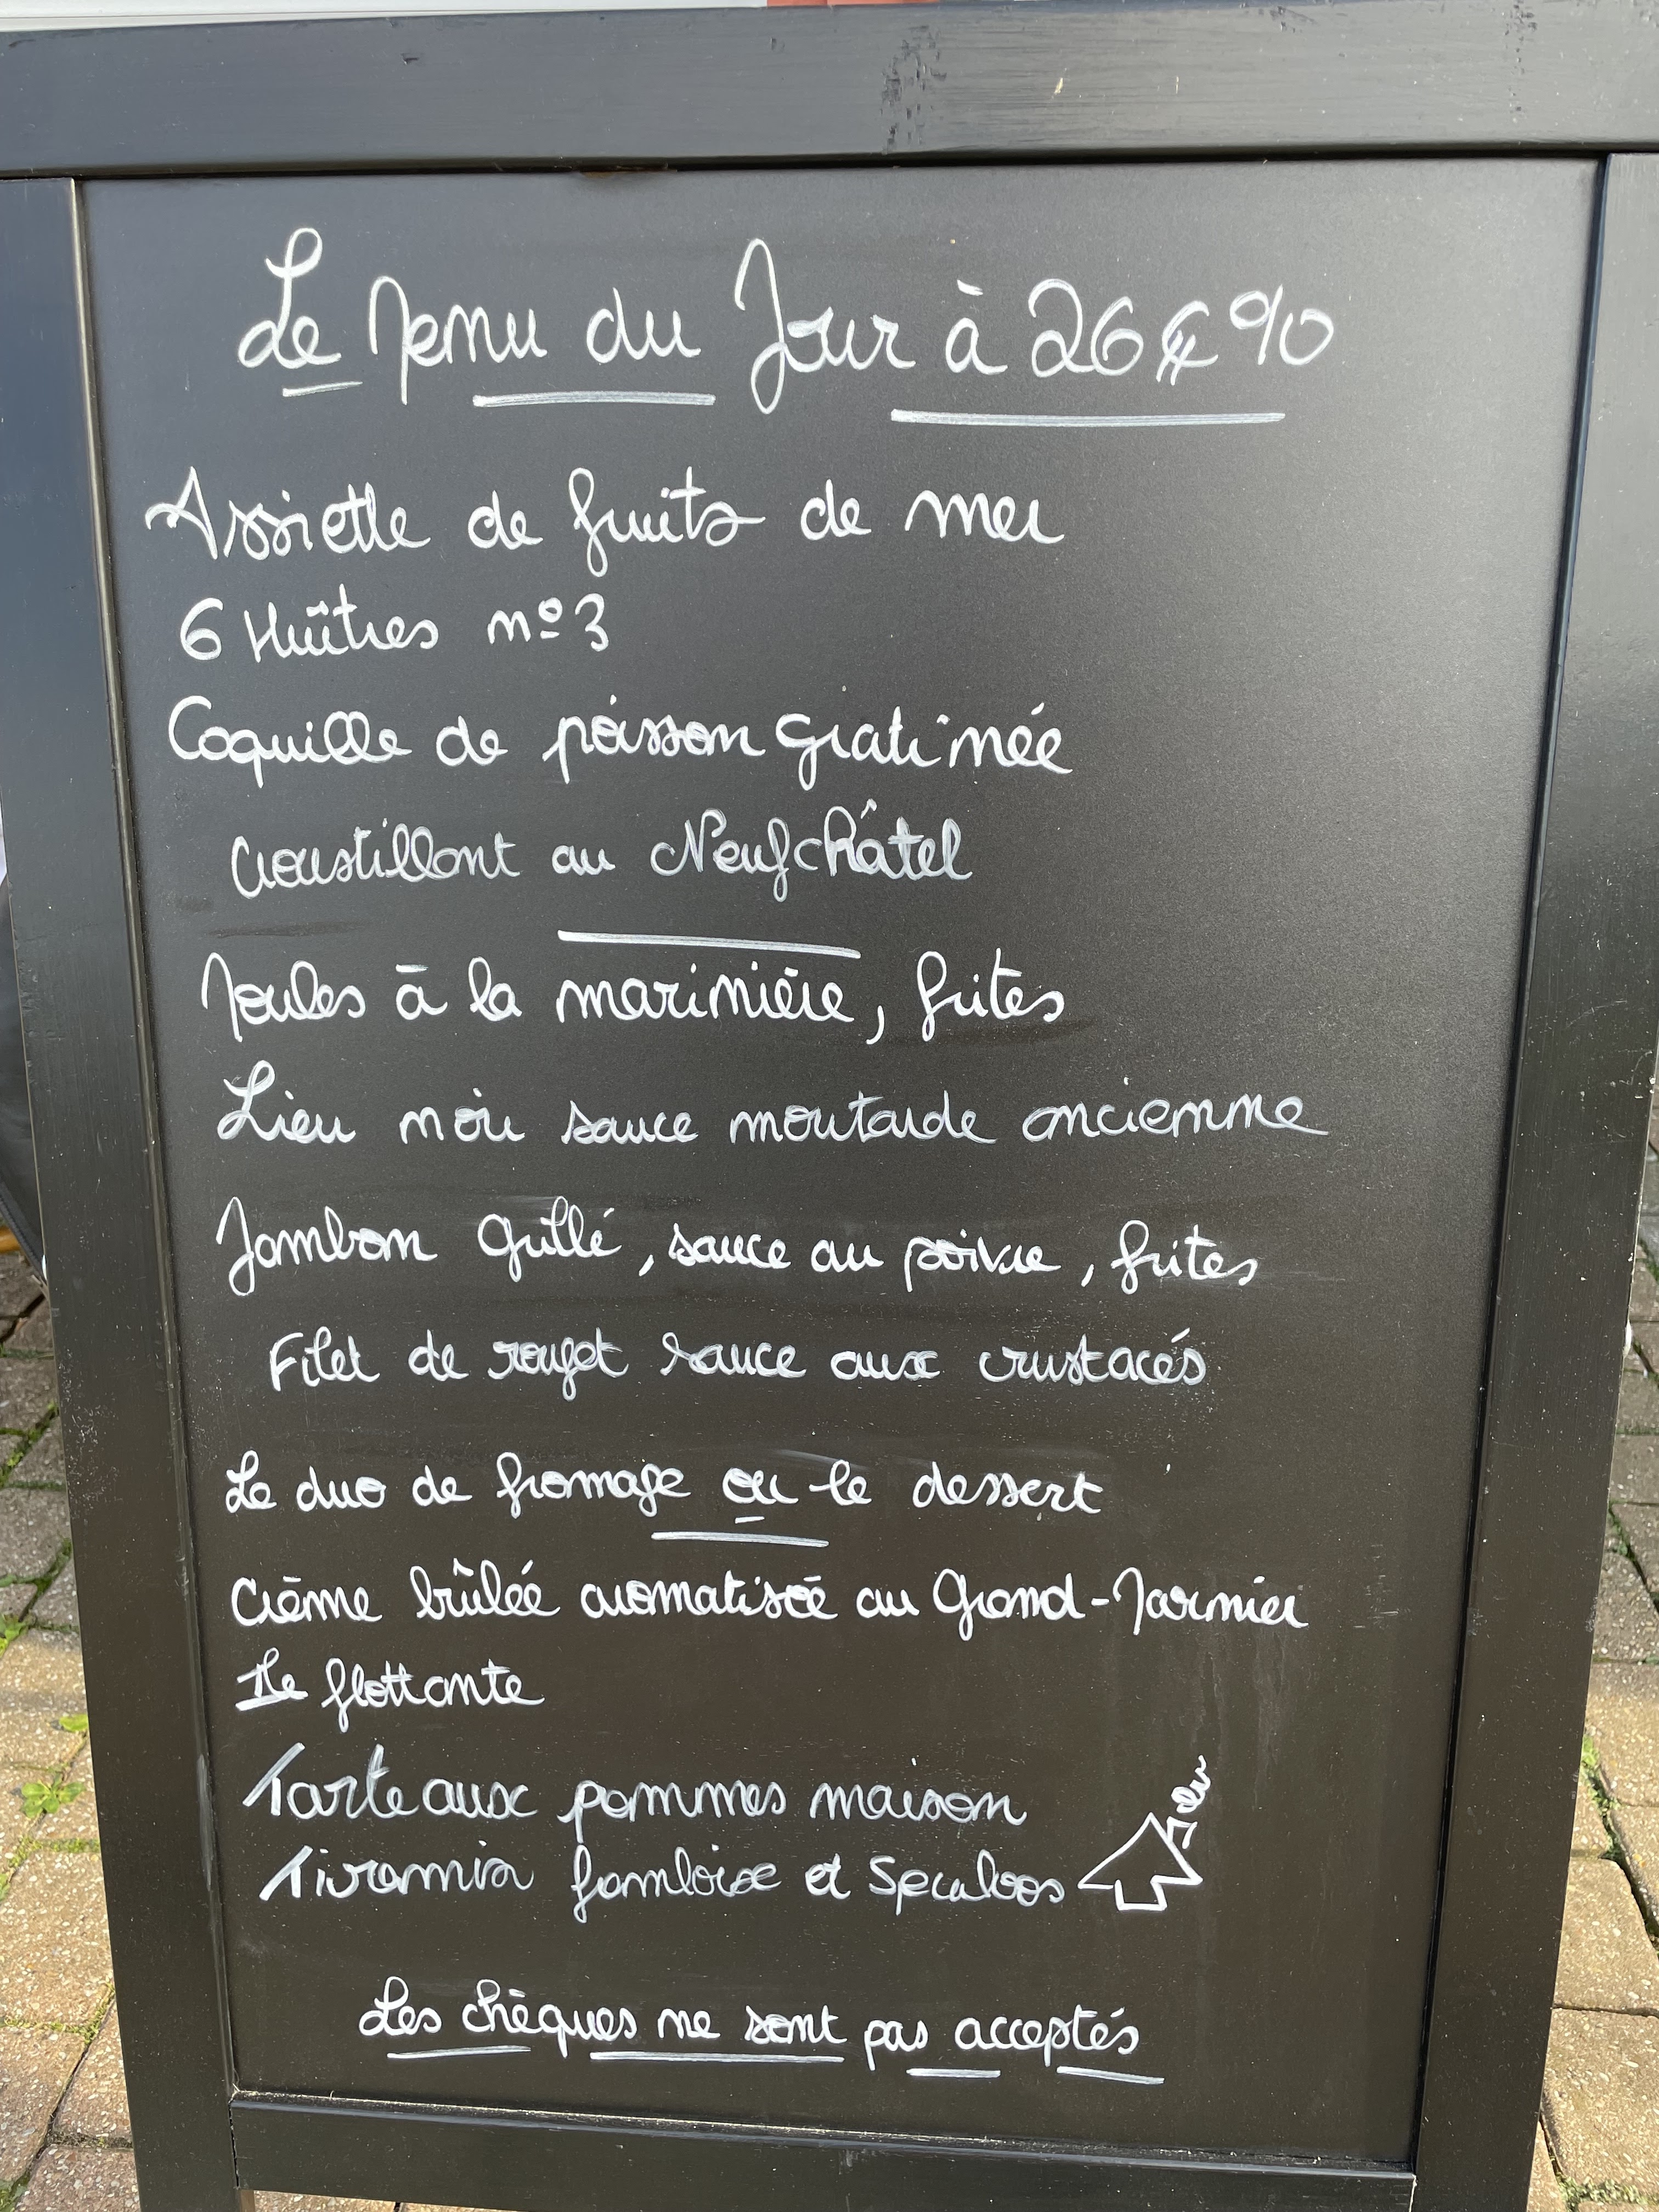 Le Menu du Jour à 26€90
Assiette de fruits de mer
6 Huîtres n°3
Coquille de poisson gratinée
Croustillant au Neufchâtel
Moules à la marinière, frites
Lieu noir sauce moutarde ancienne
Jambon Grillé, sauce au poivre, frites
Filet de rouget sauce aux crustacés
Le duo de fromage ou le dessert
Crème brûlée aromatisée au Grand-Marnier
Ile flottante
Tarte aux pommes maison
Tiramisu framboise et Speculoos
Les chèques ne sont pas acceptés